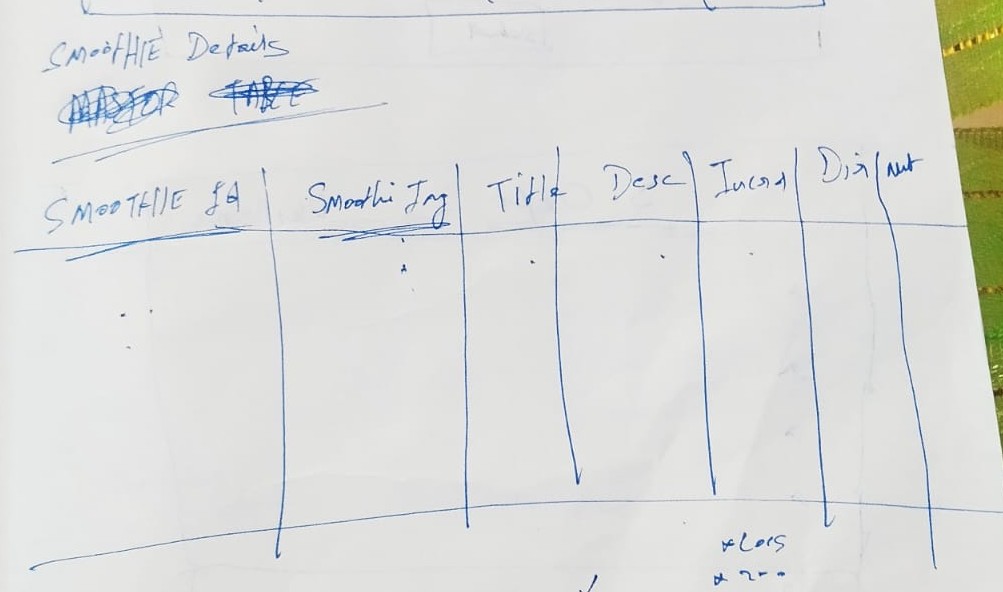 SMOOTHIE Details
MASTOR TABLE
SMOOTHIE Id Smoothi Img Title Desc Dir Nut